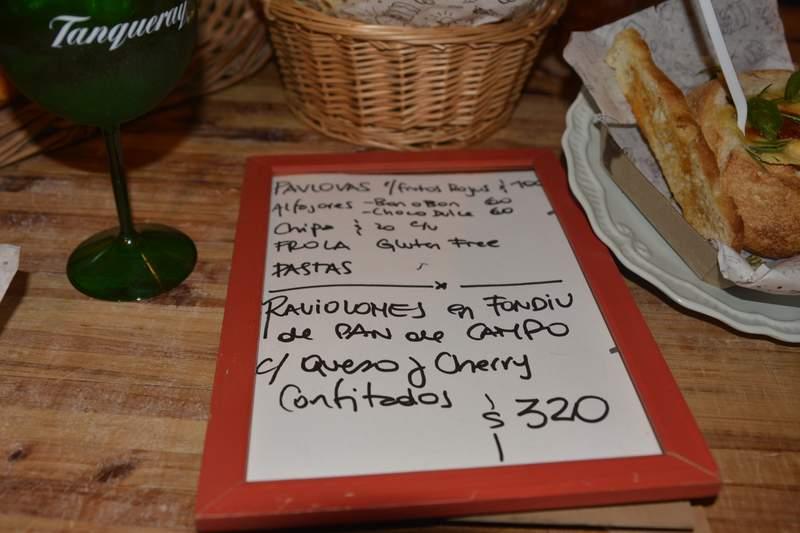 Tanqueray
PAVLOVAS c/frutos Rojos $ 100
Alfajores - Bon o Bon 60
- Choco Dulce 60
Chipa $ 20 c/u
FROLA Gluten Free
PASTAS
RAVIOLONES en FONDIU
de PAN de CAMPO
c/ Queso y Cherry
Confitados $ 320